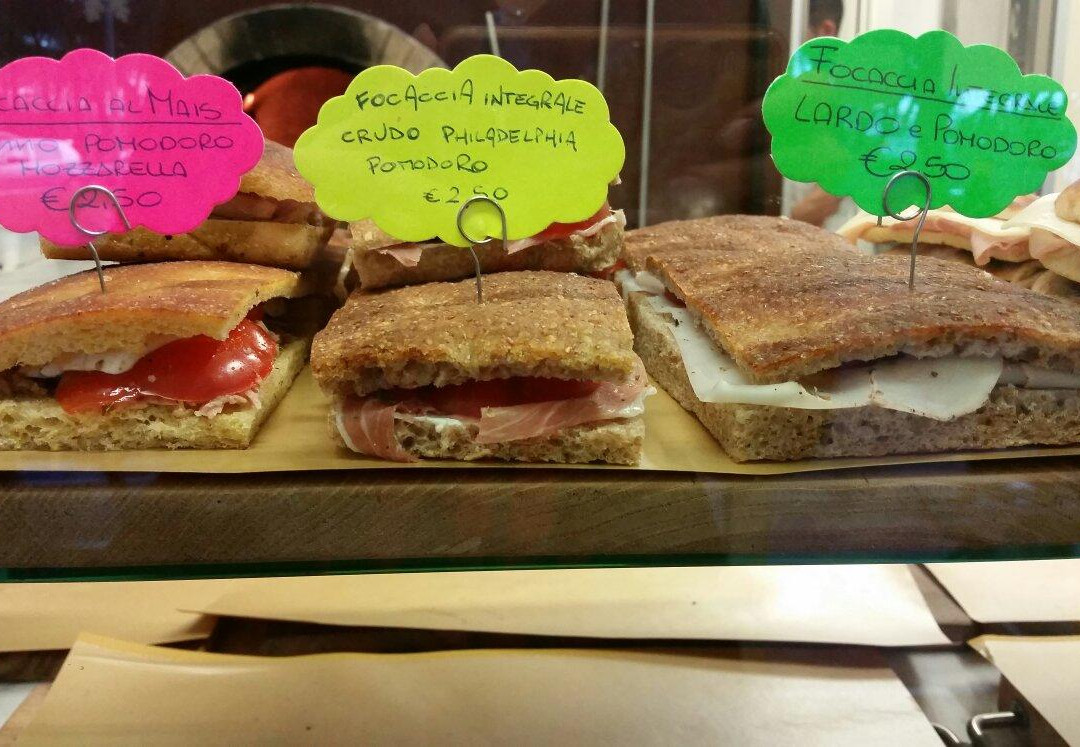 CACCIA AL MAIS
POMODORO
MOZZARELLA
€ 2,50
FOCACCIA INTEGRALE
CRUDO PHILADELPHIA
POMODORO
€ 2,50
FOCACCIA INTEGRALE
LARDO e POMODORO
€ 2,50